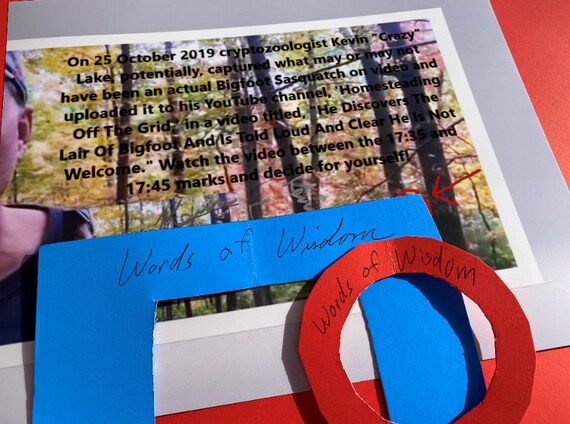 On 25 October 2019 cryptozoologist Kevin "Crazy"
Lake, potentially, captured what may or may not
have been an actual Bigfoot Sasquatch on video and
uploaded it to his YouTube channel, 'Homesteading
Off The Grid,' in a video titled, "He Discovers The
Lair Of Bigfoot And Is Told Loud And Clear He Is Not
Welcome." Watch the video between the 17:35 and
17:45 marks and decide for yourself!
Words of Wisdom
Words of Wisdom